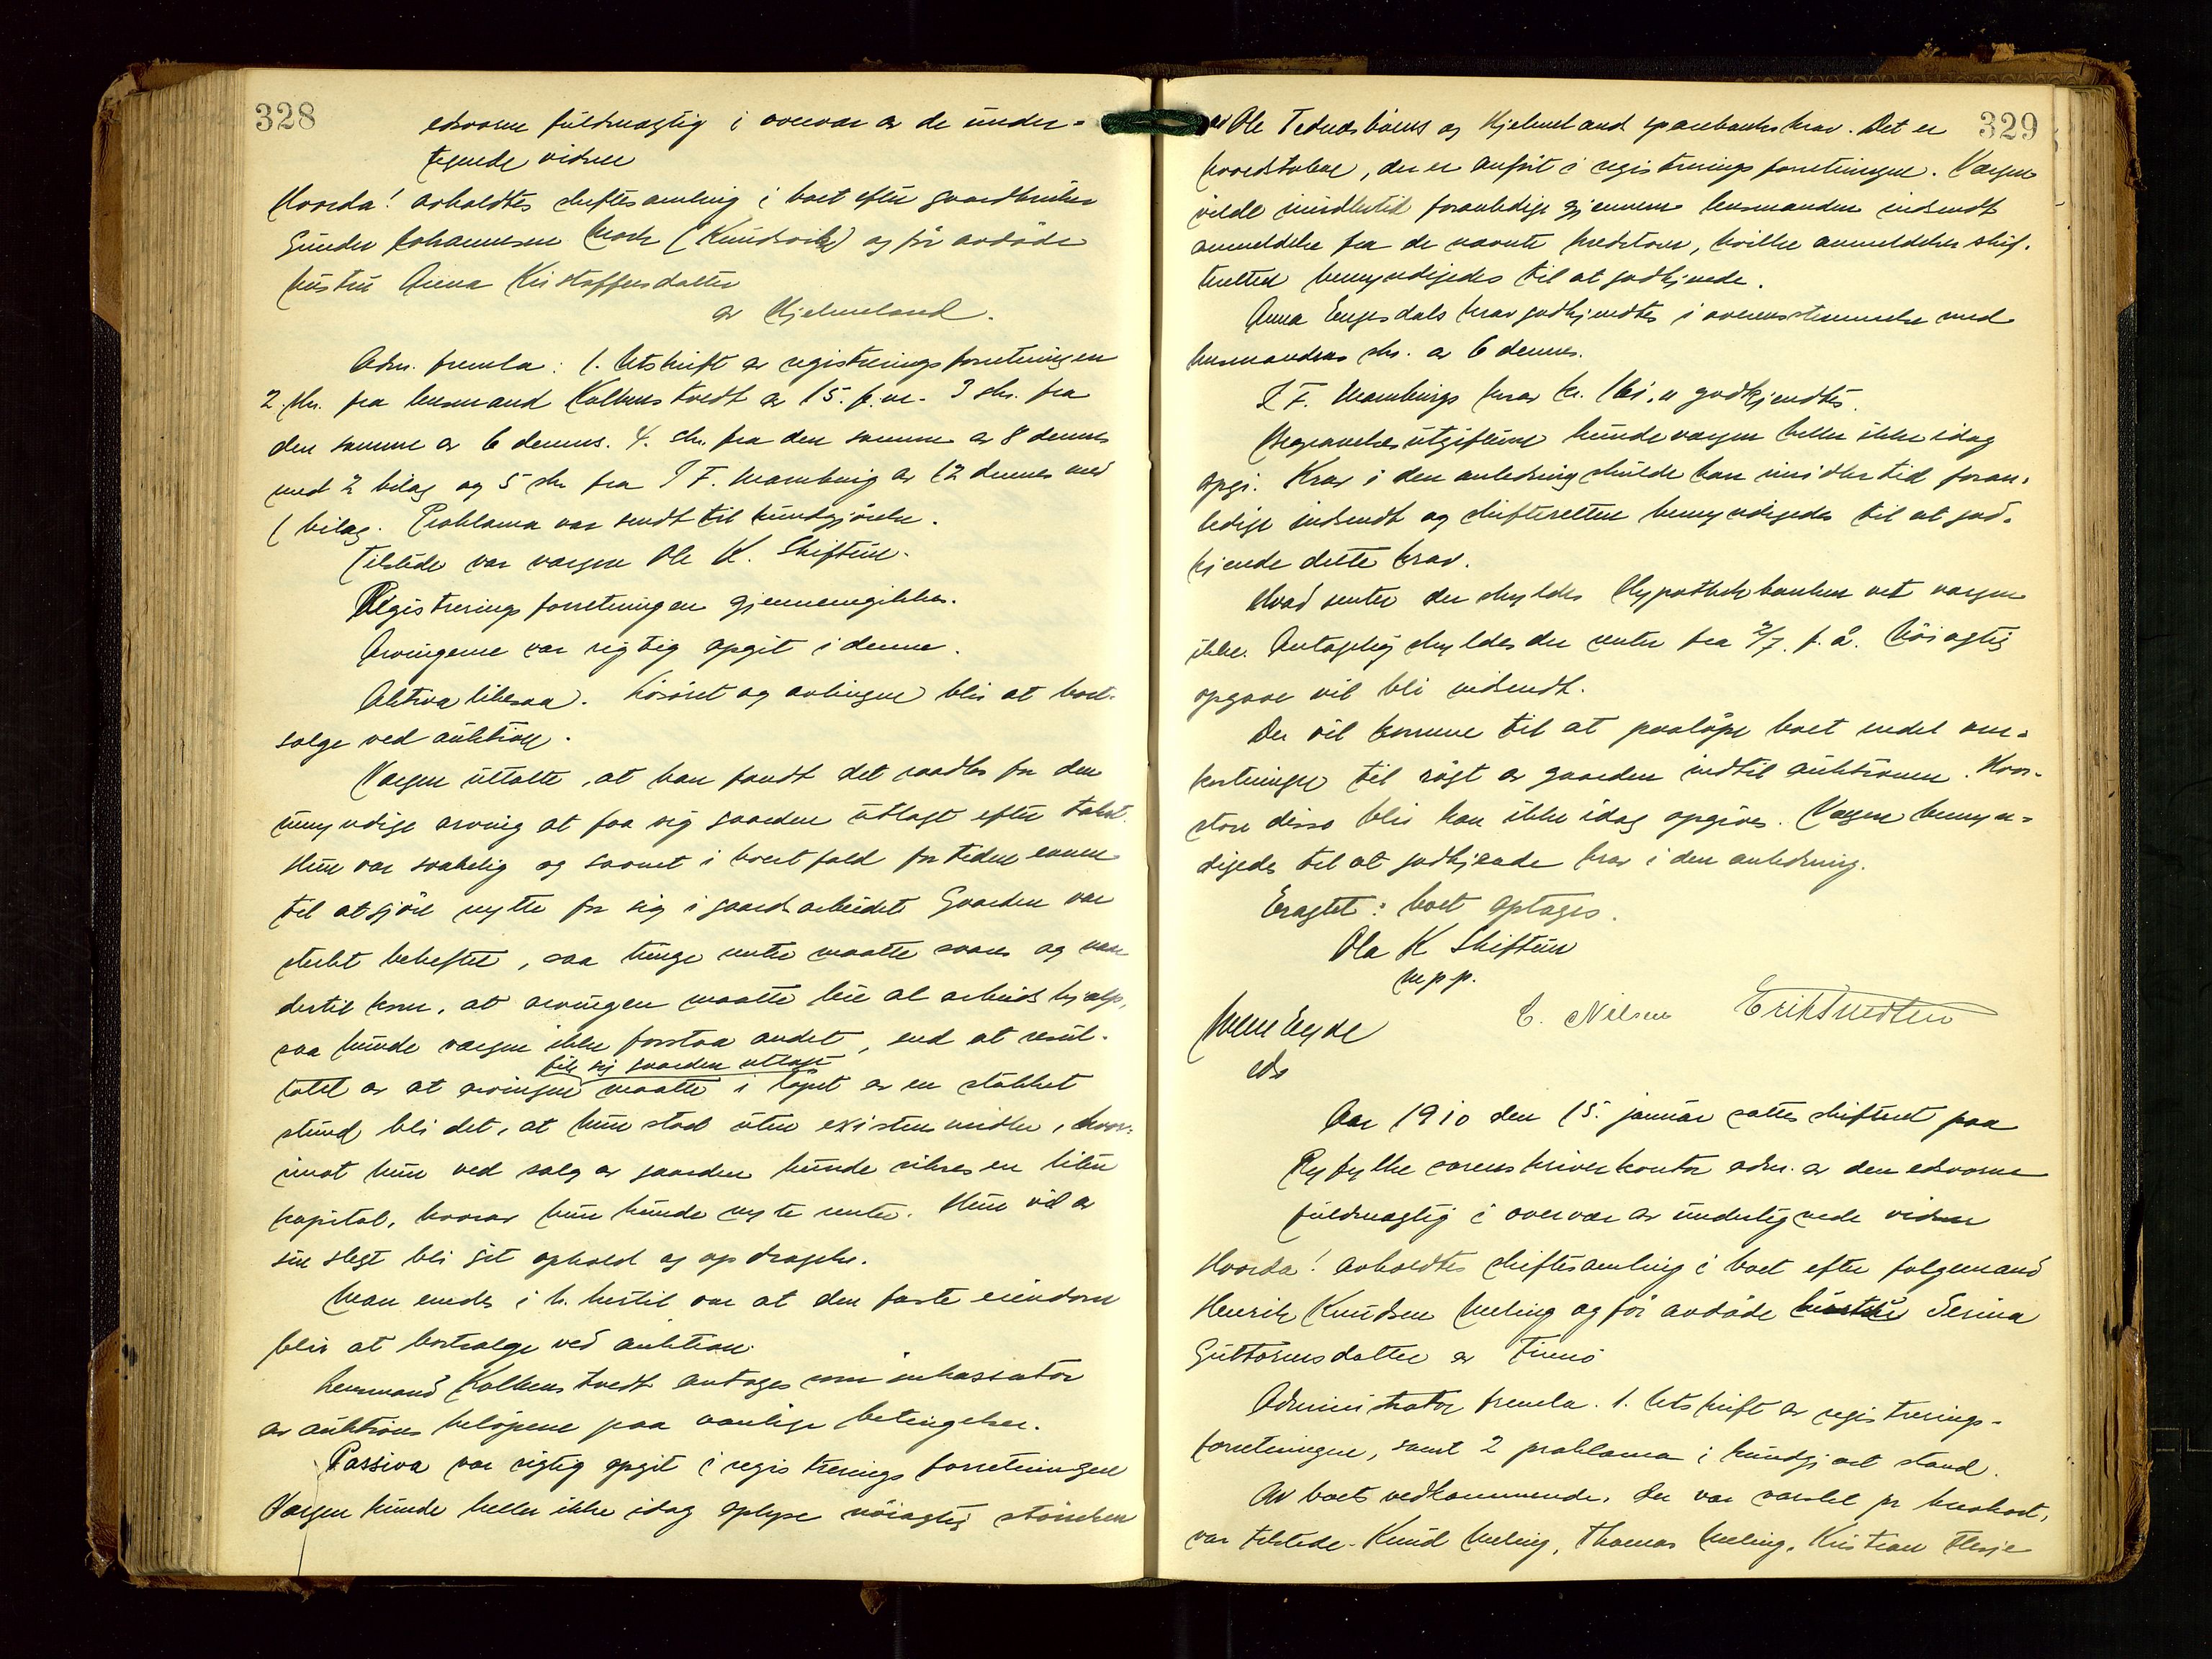 328
edsvorne fuldmægtig i overvær av de under-
tegnede vidner
Hvorda! avholdtes skiftesamling i boet efter gaardbruker
Gunder Johannesen (Knudsvik) og før avdøde
hustru Anna Kristoffersdatter
av Hjelmeland.
Adm. fremla: 1. Utskrift av registreringsforretningen
2. skr. fra lensmand Kolbenstvedt av 15. f.m. 3 skr. fra
den samme av 6 dennes. 4. skr. fra den samme av 8 dennes
med 2 bilag og 5 skr fra I F. Mamburg av 12 dennes med
1 bilag. Proklama var sendt til kundgjørelse.
Tilstede var værgen Ole K. Skiftun.
Registreringsforretningen gjennemgikkes.
Arvingerne var rigtig opgit i denne.
Aktiva likesaa. Løsøret og avlingen blir at bort-
sælge ved auktion.
Værgen uttalte, at han fandt det raadløs for den
umyndige arving at faa sig gaarden utlagt efter takst.
Hun var svakelig og savnet i hvert fald for tiden evnen
til at gjøre nytte for sig i gaardsarbeidet Gaarden var
sterkt beheftet, saa tunge renter maatte svares og naar
dertil kom, at arvingen maatte leie al arbeidshjælp,
saa kunde værgen ikke forstaa andet, end at resul-
fik sig gaarden utlagt
tatet av at arvingen maatte i løpet av en stakket
stund bli det, at hun stod uten existensmidler, hvor-
imot hun ved salg av gaarden kunde sikres en liten
kapital, hvorav hun kunde nyte renter. Hun vil av
sin slegt bli git ophold og opdragelse.
Man enedes i h. hertil om at den faste eiendom
blir at bortsælge ved auktion.
Lensmand Kolbenstvedt antages som inkassator
av auktionsbeløpene paa vanlige betingelser.
Passiva var rigtig opgit i registreringsforretningen
Værgen kunde heller ikke idag oplyse nøiagtig størrelsen
329
av Ole Tednæsbøens og Hjelmeland sparebanks krav. Det er
hovedstolene, der er anført i registreringsforretningen. Værgen
vilde imidlertid foranledige gjennem lensmanden indsendt
anmeldelse fra de nævnte kreditorer, hvilke anmeldelser skif-
teretten bemyndigedes til at godkjende.
Anna Engesdals krav godkjendtes i overensstemmelse med
lensmandens skr. av 6 dennes.
I F. Mamburgs krav kr. 161, godkjendtes.
Begravelsesutgifterne kunde værgen heller ikke idag
opgi. Krav i den anledning skulde han imidlertid foran-
ledige indsendt og skifteretten bemyndigedes til at god-
kjende dette krav.
Hvad renter der skyldes Hypothekbanken vet værgen
ikke. Antagelig skyldes der renter fra 2/7 f. å. Nøiagtig
opgave vil bli indsendt.
Der vil komme til at paaløpe boet endel om-
kostninger til røgt av gaarden indtil auktionen. Hvor-
store disse blir kan ikke idag opgives. Værgen bemyn-
digedes til at godkjende krav i den anledning.
Eragtet: boet optages.
Ola K Skiftun
m.p.p.
E. Nilsen Erik Smedten
eds
Aar 1910 den 15. januar sattes skifteret paa
Ryfylke sorenskriverkontor adm. av den edsvorne
fuldmægtig i overvær av undertegnede vidner
Hvorda! avholdtes skiftesamling i boet efter følgemand
Henrik Knudsen Meling og før avdøde hustru Serina
Guttormsdatter av Finnø
Administrator fremla. 1. Utskrift av registrerings-
forretningen, samt 2 proklama i kundgjort stand.
Av boets vedkommende, der var varslet pr brevkort,
var tilstede. Knud Meling, Thomas Meling, Kristian Flesje